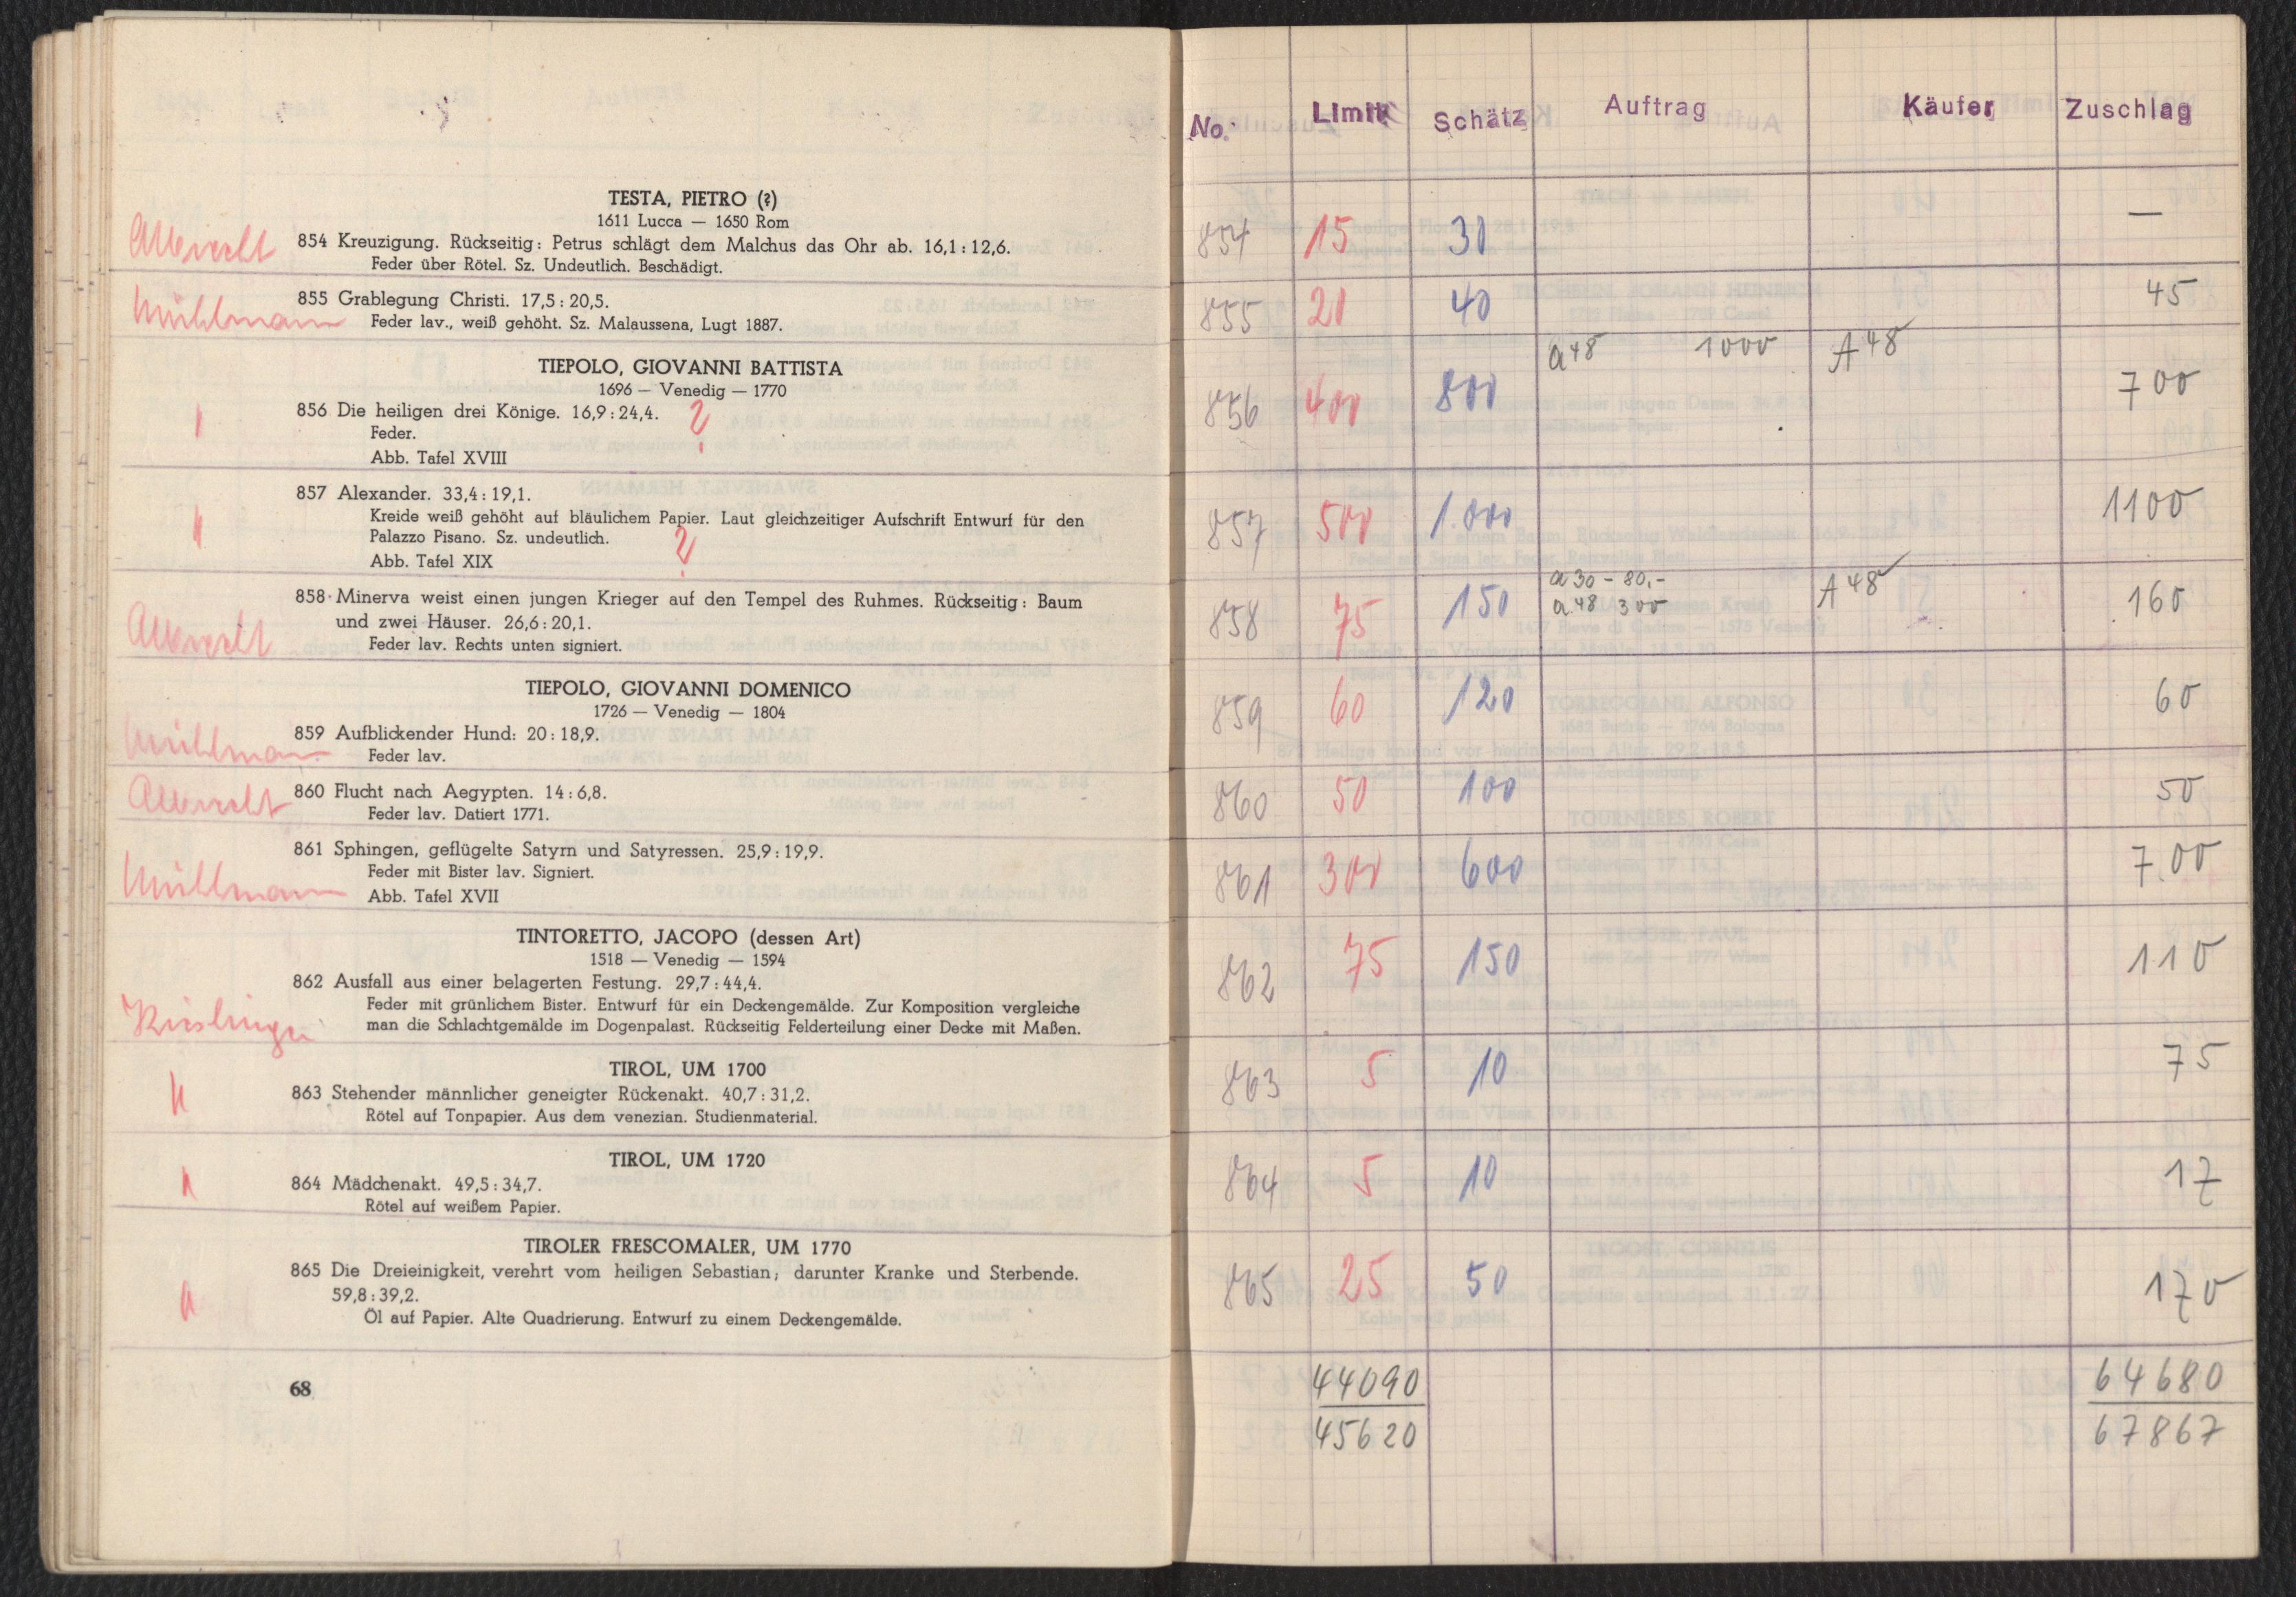 TESTA, PIETRO (?)
1611 Lucca — 1650 Rom
Albrecht
854 Kreuzigung. Rückseitig: Petrus schlägt dem Malchus das Ohr ab. 16,1 : 12,6.
Feder über Rötel. Sz. Undeutlich. Beschädigt.
855 Grablegung Christi. 17,5 : 20,5.
Mühlmann
Feder lav., weiß gehöht. Sz. Malaussena, Lugt 1887.
TIEPOLO, GIOVANNI BATTISTA
1696 — Venedig — 1770
856 Die heiligen drei Könige. 16,9 : 24,4. ?
Feder.
Abb. Tafel XVIII
857 Alexander. 33,4 : 19,1.
Kreide weiß gehöht auf bläulichem Papier. Laut gleichzeitiger Aufschrift Entwurf für den
Palazzo Pisano. Sz. undeutlich. ?
Abb. Tafel XIX
858 Minerva weist einen jungen Krieger auf den Tempel des Ruhmes. Rückseitig: Baum
und zwei Häuser. 26,6 : 20,1.
Albrecht
Feder lav. Rechts unten signiert.
TIEPOLO, GIOVANNI DOMENICO
1726 — Venedig — 1804
859 Aufblickender Hund: 20 : 18,9.
Mühlmann
Feder lav.
Albrecht
860 Flucht nach Aegypten. 14 : 6,8.
Feder lav. Datiert 1771.
861 Sphingen, geflügelte Satyrn und Satyressen. 25,9 : 19,9.
Feder mit Bister lav. Signiert.
Mühlmann
Abb. Tafel XVII
TINTORETTO, JACOPO (dessen Art)
1518 — Venedig — 1594
862 Ausfall aus einer belagerten Festung. 29,7 : 44,4.
Feder mit grünlichem Bister. Entwurf für ein Deckengemälde. Zur Komposition vergleiche
man die Schlachtgemälde im Dogenpalast. Rückseitig Felderteilung einer Decke mit Maßen.
TIROL, UM 1700
863 Stehender männlicher geneigter Rückenakt. 40,7 : 31,2.
Rötel auf Tonpapier. Aus dem venezian. Studienmaterial.
TIROL, UM 1720
864 Mädchenakt. 49,5 : 34,7.
Rötel auf weißem Papier.
TIROLER FRESCOMALER, UM 1770
865 Die Dreieinigkeit, verehrt vom heiligen Sebastian; darunter Kranke und Sterbende.
59,8 : 39,2.
Öl auf Papier. Alte Quadrierung. Entwurf zu einem Deckengemälde.
68
No. Limit Schätz Auftrag Käufer Zuschlag
854 15 30 —
855 20 40 45
856 400 800 a 48 1000 A 48 700
857 500 1.000 1100
858 75 150 a 30 - 80.- A 48 160
a 48 300
859 60 120 60
860 50 100 50
861 300 600 7.00
862 75 150 110
863 5 10 75
864 5 10 17
865 25 50 170
44090 64680
45620 67867